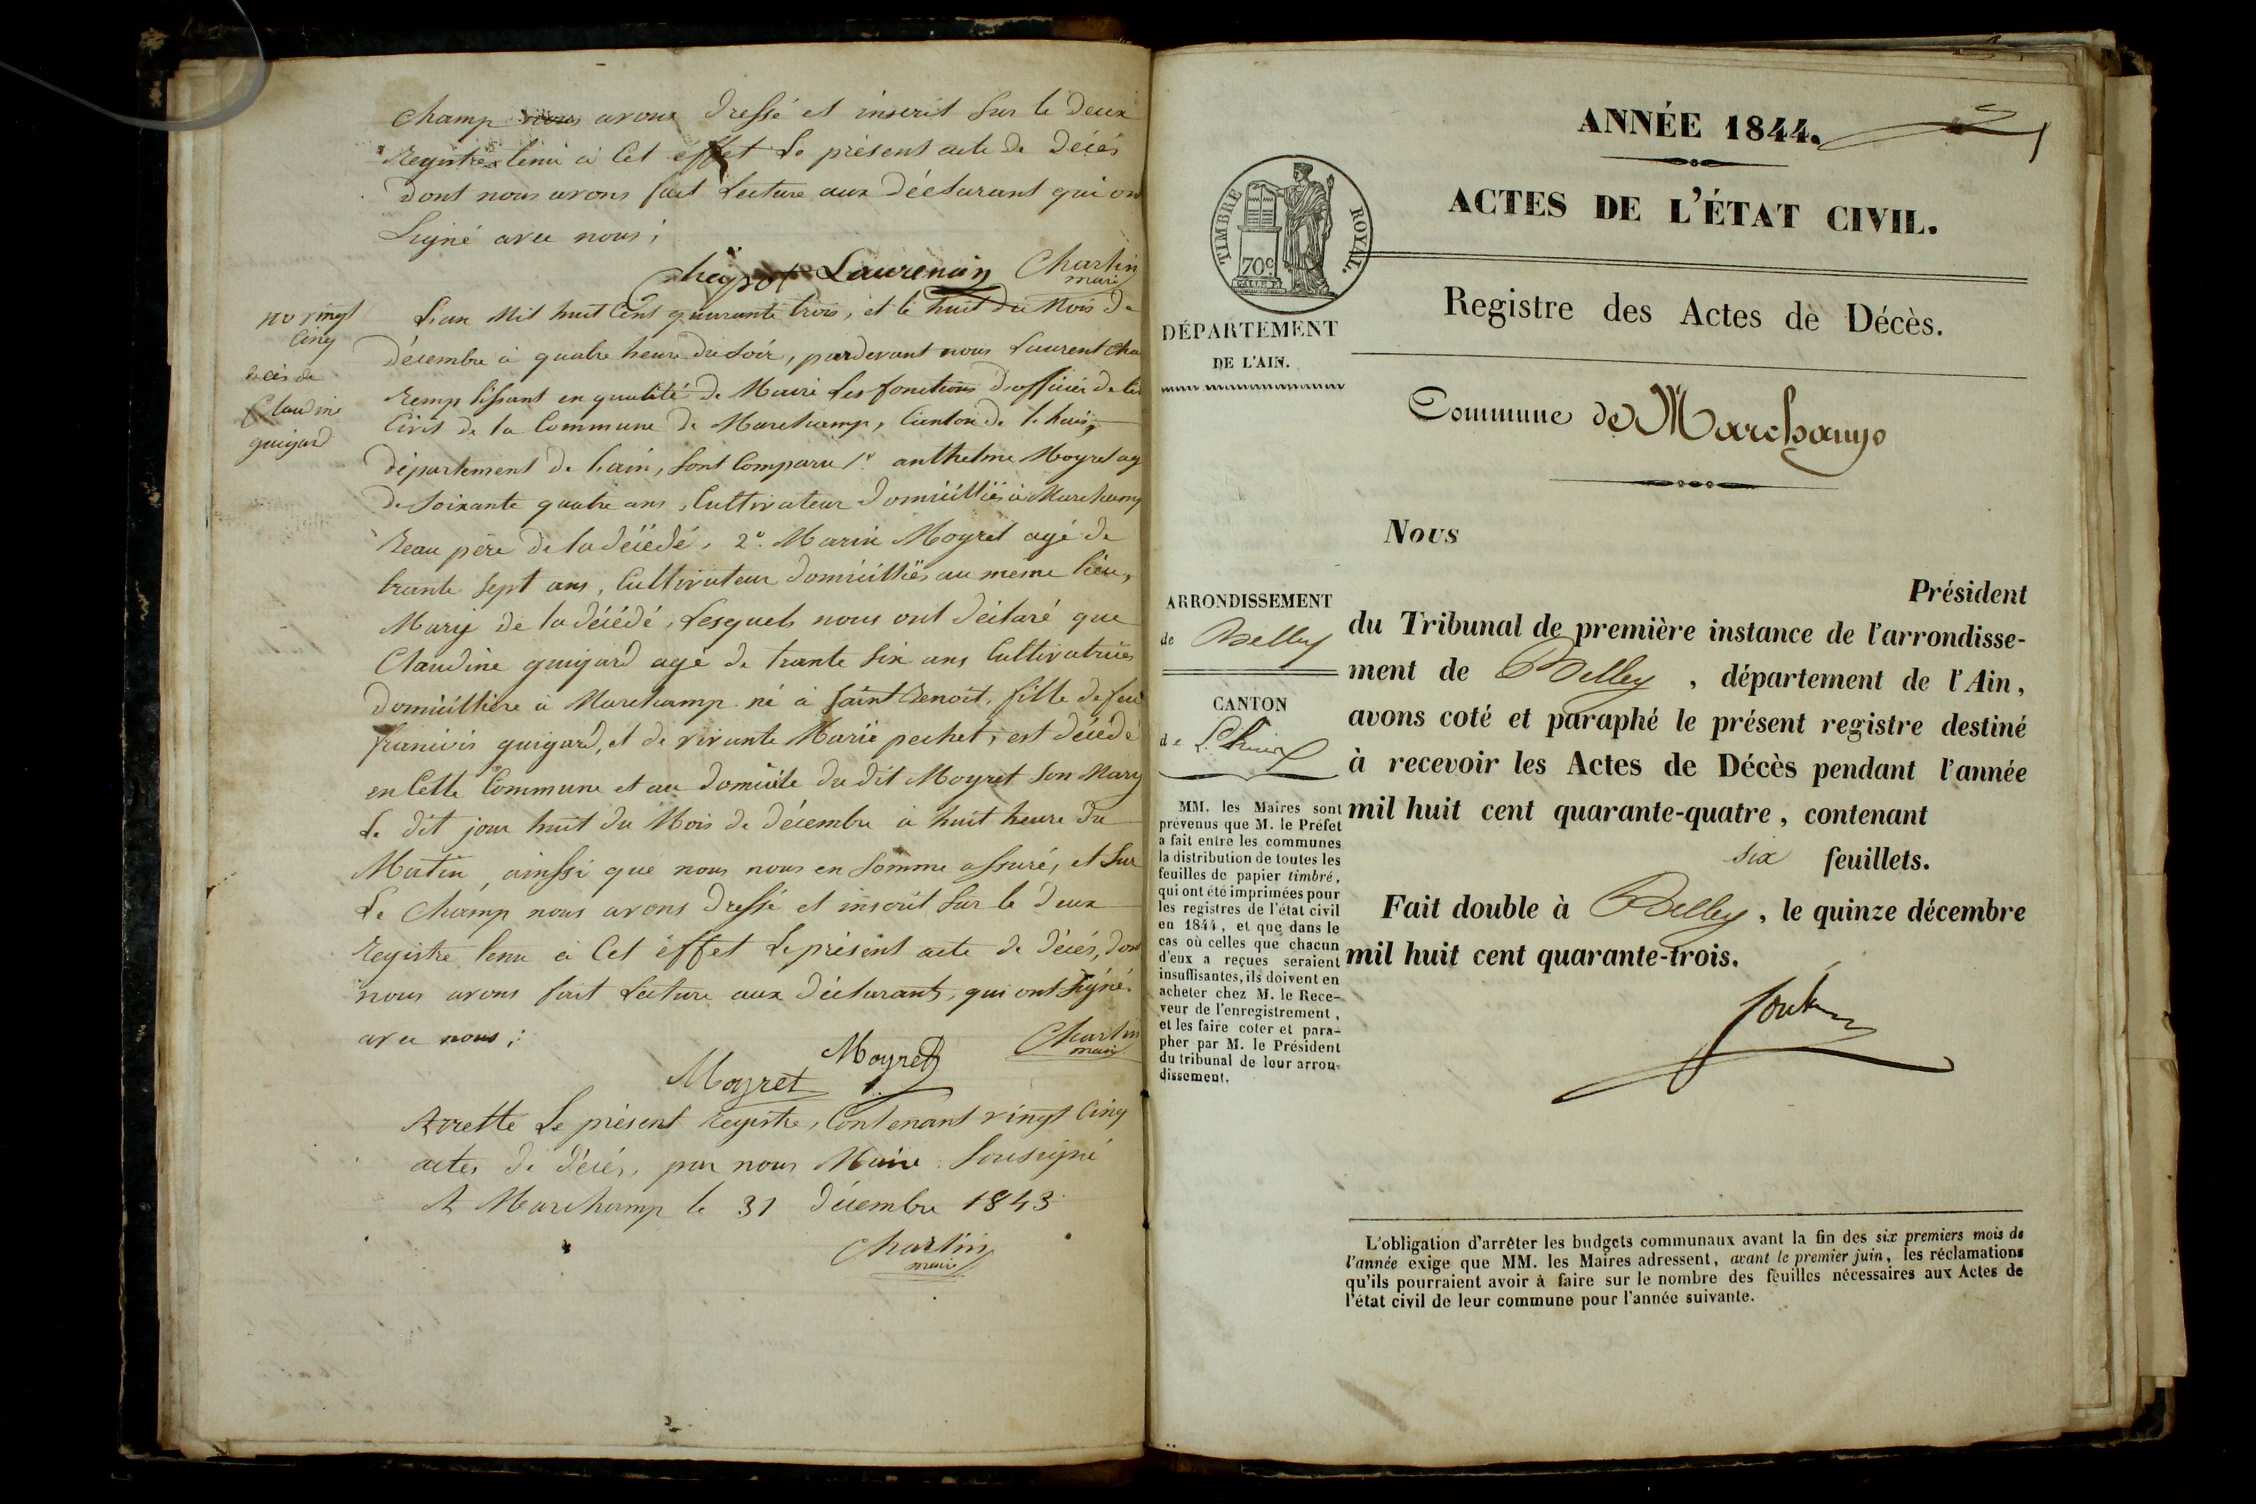 champ nous avons dressé et inscrit sur le deux
Registre tenu à Cet éffet Le présent acte de décés
dont nous avons fait Lecture aux déclarant qui ont
Signé avec nous;
Laurencin Charlin
maire
no vingt
Cinq
décès de
Claudine
guigard
L'an Mil huit Cent quarante trois, et le huit du Mois de
décembre à quatre heure du Soir, pardevant nous Laurent Cha
Remplissant en qualité de Maire Les fonctions d'officier de
Civil de la Commune de Marchamp, Canton de L'huis,
département de L'ain, Sont Comparu 1º anthelme Moyret agé
de Soixante quatre ans, Cultivateur domicilliés à Marchamp
Beau père de la décédé, 2º. Marin Moyret agé de
trante Sept ans, Cultivateur domicilliés au meme lieu,
Mary de la décédé, Lesquels nous ont déclaré que
Claudine guigard agé de trante Six ans Cultivatrice
domicillière à Marchamp né à Saint Benoit, fille de feu
francois guigard, et de vivante Marie pechet, est décédé
en Cette Commune et au domicile du dit Moyret Son Mary
Le dit jour huit du Mois de décembre à huit heure du
Matin, ainssi que nous nous en Somme assuré, et Sur
Le Champ nous avons dressé et inscrit Sur le deux
Registre tenu à Cet éffet Le présent acte de décés, dont
nous avons fait Lecture aux déclarants, qui ont Signé
avec nous;
Moyret Moyret Charlin
maire
Arrette Le présent registre, Contenant vingt Cinq
actes de décés, par nous Maire Sousigné
A Marchamp le 31 décembre 1843
Charlin
maire
ANNÉE 1844.
ACTES DE L'ÉTAT CIVIL.
TIMBRE ROYAL.
70c
Registre des Actes de Décès.
DÉPARTEMENT
DE L'AIN.
Commune de Marchamp
Nous
Président
du Tribunal de première instance de l'arrondisse-
ment de Belley, département de l'Ain,
avons coté et paraphé le présent registre destiné
à recevoir les Actes de Décès pendant l'année
mil huit cent quarante-quatre, contenant
six feuillets.
Fait double à Belley, le quinze décembre
mil huit cent quarante-trois.
ARRONDISSEMENT
de Belley
CANTON
de L'huis
MM. les Maires sont
prévenus que M. le Préfet
a fait entre les communes
la distribution de toutes les
feuilles de papier timbré,
qui ont été imprimées pour
les registres de l'état civil
en 1844, et que dans le
cas où celles que chacun
d'eux a reçues seraient
insuffisantes, ils doivent en
acheter chez M. le Rece-
veur de l'enregistrement,
et les faire coter et para-
pher par M. le Président
du tribunal de leur arron-
dissement.
L'obligation d'arrêter les budgets communaux avant la fin des six premiers mois de
l'année exige que MM. les Maires adressent, avant le premier juin, les réclamations
qu'ils pourraient avoir à faire sur le nombre des feuilles nécessaires aux Actes de
l'état civil de leur commune pour l'année suivante.